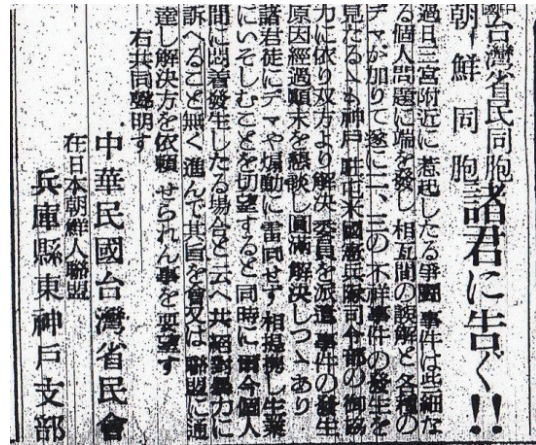 中國台灣省民同胞
朝鮮同胞
諸君に告ぐ!!
過日三宮附近に惹起したる爭鬪事件は此細な
る個人問題に端を發し相互間の誤解と各種の
デマが加りて遂に二、三の不祥事件の發生を
見たるゝも神戸駐屯米國憲兵隊司令部の御協
力に依り双方より解決委員を派遣事件の發生
原因經過顚末を懇談し圓滿解決しつゝあり
諸君徒にデマや煽動に雷同せず相提携し生業
にいそしむことを切望すると同時に爾今個人
間に悶着發生したる場合と云へ共絕對暴力に
訴へること無く進んで其旨を會又は聯盟に通
達し解決方を依頼せられん事を要望す
右共同聲明す
中華民國台灣省民會
在日本朝鮮人聯盟
兵庫縣東神戸支部